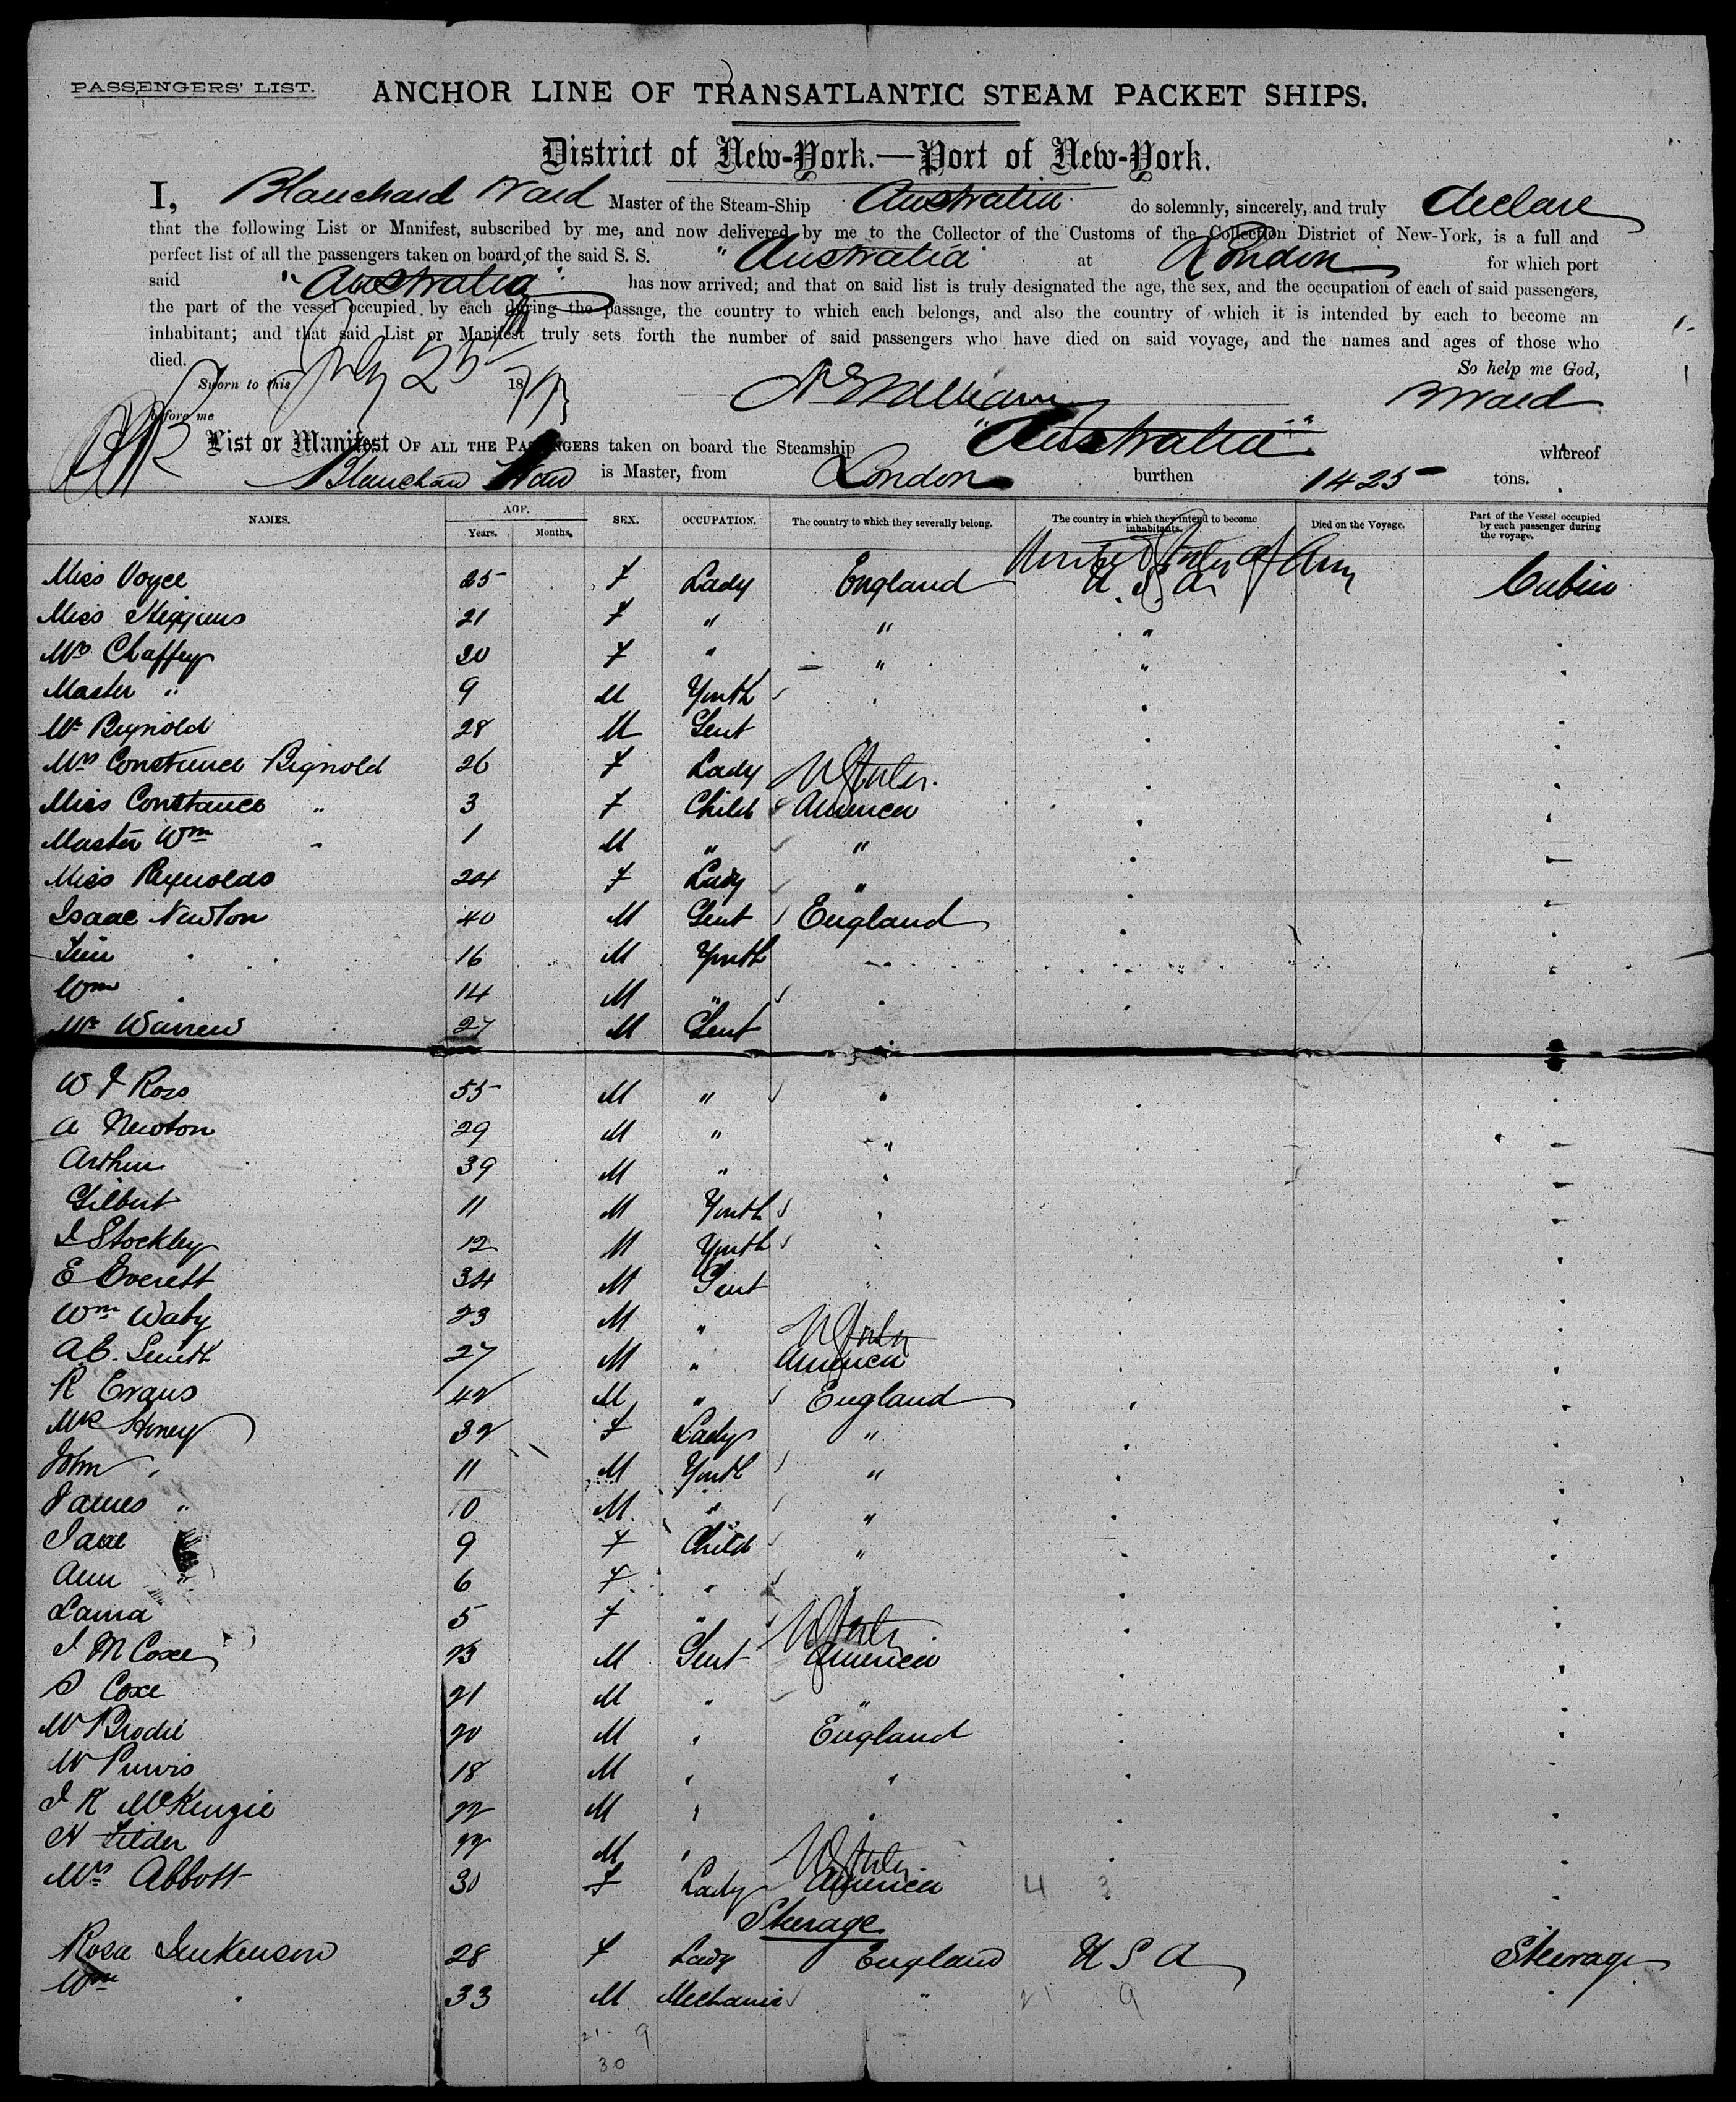 PASSENGERS' LIST.
ANCHOR LINE OF TRANSATLANTIC STEAM PACKET SHIPS.
District of New-York.—Port of New-York.
I, Blanchard Ward Master of the Steam-Ship Australia do solemnly, sincerely, and truly declare
that the following List or Manifest, subscribed by me, and now delivered by me to the Collector of the Customs of the Collection District of New-York, is a full and
perfect list of all the passengers taken on board of the said S. S. "Australia" at London for which port
said "Australia" has now arrived; and that on said list is truly designated the age, the sex, and the occupation of each of said passengers,
the part of the vessel occupied by each during the passage, the country to which each belongs, and also the country of which it is intended by each to become an
inhabitant; and that said List or Manifest truly sets forth the number of said passengers who have died on said voyage, and the names and ages of those who
died. So help me God,
Sworn to this July 25 18 B Ward
before me
List or Manifest OF ALL THE PASSENGERS taken on board the Steamship "Australia" whereof
Blanchard Ward is Master, from London burthen 1425 tons.
NAMES. AGE. Years. Months. SEX. OCCUPATION. The country to which they severally belong. The country in which they intend to become inhabitants. Died on the Voyage. Part of the Vessel occupied by each passenger during the voyage.
United States of Am
Miss Voyce 25 F Lady England U.S.A. Cabin
Miss Higgins 21 F " " "
Mrs Chaffey 20 F " " "
Master " 9 M Youth
Mr Rignold 28 M Gent
Mrs Constance Rignold 26 F Lady U States
Miss Constance " 3 F Child America
Master Wm " 1 M " "
Miss Reynolds 24 F Lady "
Isaac Newton 40 M Gent England
16 M Youth
Wm 14 M "
Mr Warren 27 M Gent
W J Ross 55 M " "
A Newton 29 M " "
Arthur 39 M " "
Gilbert 11 M Youth
J Stockley 12 M Youth
E Everett 34 M Gent
Wm Waby 23 M " U States
A.E. Smith 27 M " America
R Evans 42 M " England
Mrs Honey 32 F Lady "
John " 11 M Youth "
James " 10 M " "
Jane " 9 F Child "
Ann " 6 F " "
Laura 5 F " U States
J M Coxe 23 M Gent America
S Coxe 21 M " "
W Brodie 20 M " England
W Purvis 18 M " "
J K McKenzie 22 M " "
N Tilden 22 M " U States
Mrs Abbott 30 F Lady America 4 3
Steerage
Rosa Jenkenson 28 F Lady England U S A Steerage
Wm " 33 M Mechanic " 21 9
21 9
30